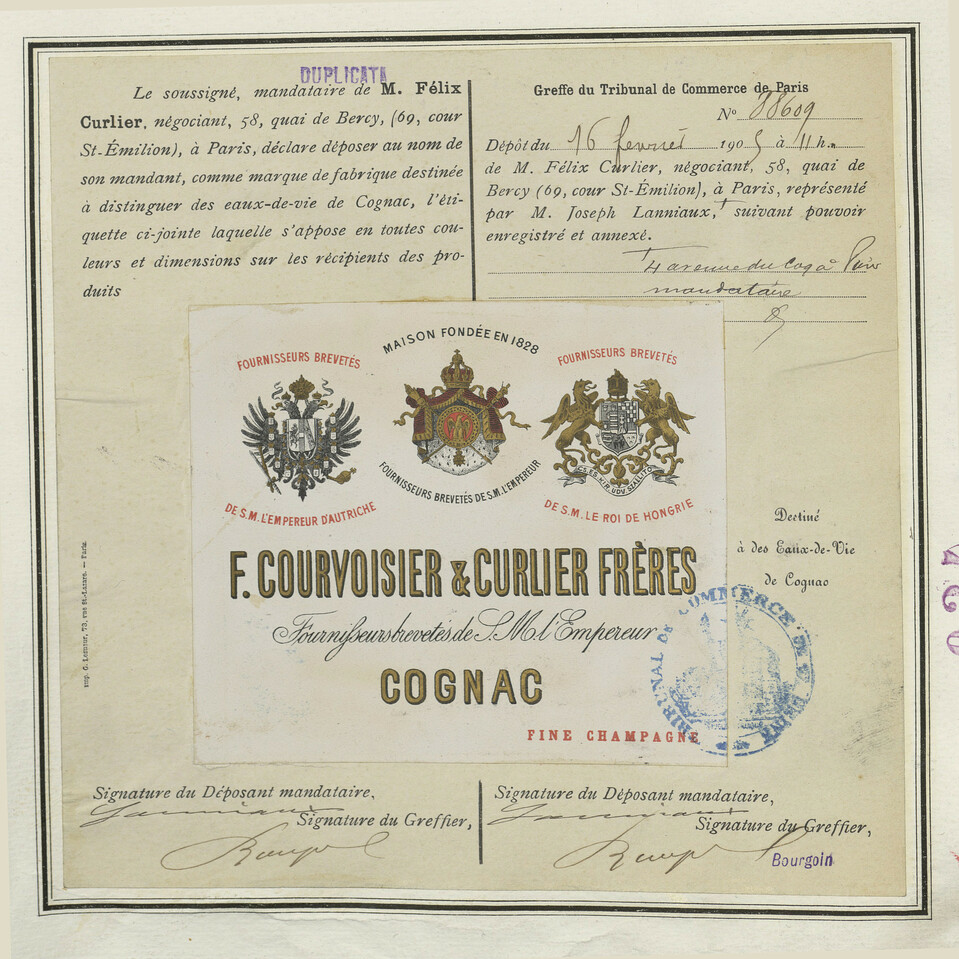 DUPLICATA
Le soussigné, mandataire de M. Félix
Curlier, négociant, 58, quai de Bercy, (69, cour
St-Émilion), à Paris, déclare déposer au nom de
son mandant, comme marque de fabrique destinée
à distinguer des eaux-de-vie de Cognac, l'éti-
quette ci-jointe laquelle s'appose en toutes cou-
leurs et dimensions sur les récipients des pro-
duits
Greffe du Tribunal de Commerce de Paris
No 88609
Dépôt du 16 février 1905 à 11 h.
de M. Félix Curlier, négociant, 58, quai de
Bercy (69, cour St-Émilion), à Paris, représenté
par M. Joseph Lanniaux, † suivant pouvoir
enregistré et annexé.
† 4 avenue du Coq à Paris
mandataire
MAISON FONDÉE EN 1828
FOURNISSEURS BREVETÉS
FOURNISSEURS BREVETÉS
FOURNISSEURS BREVETÉS DE S.M. L'EMPEREUR
DE S.M. L'EMPEREUR D'AUTRICHE
DE S.M. LE ROI DE HONGRIE
F. COURVOISIER & CURLIER FRÈRES
Fournisseurs brevetés de S.M. l'Empereur
COGNAC
FINE CHAMPAGNE
Destiné
à des Eaux-de-Vie
de Cognac
TRIBUNAL DE COMMERCE DE
Signature du Déposant mandataire,
Lanniaux
Signature du Greffier,
Signature du Déposant mandataire,
Lanniaux
Signature du Greffier,
Bourgoin